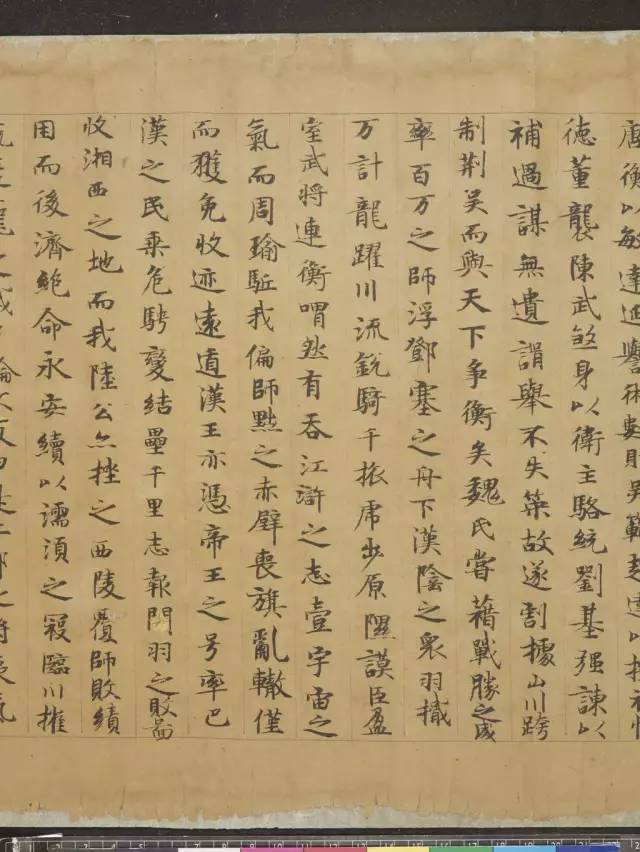 衡以敏達延譽術數則吳範趙達以
德董襲陳武煞身以衛主駱統劉基强諫以
補過謀無遺諝舉不失策故遂割據山川跨
制荆吴而與天下争衡矣魏氏嘗藉戰勝之威
率百万之師浮鄧塞之舟下漢陰之衆羽檝
万計龍躍川流銳騎千旅虎步原隰謨臣盈
室武将連衡喟然有吞江滸之志壹宇宙之
氣而周瑜駈我偏師黜之赤壁喪旗亂轍僅
而獲免收迹遠遁漢王亦憑帝王之号率巴
漢之民乘危騁變結壘千里志報關羽之敗啚
收湘西之地而我陸公亦挫之西陵覆師敗績
困而後濟絶命永安續以濡須之寇臨川摧